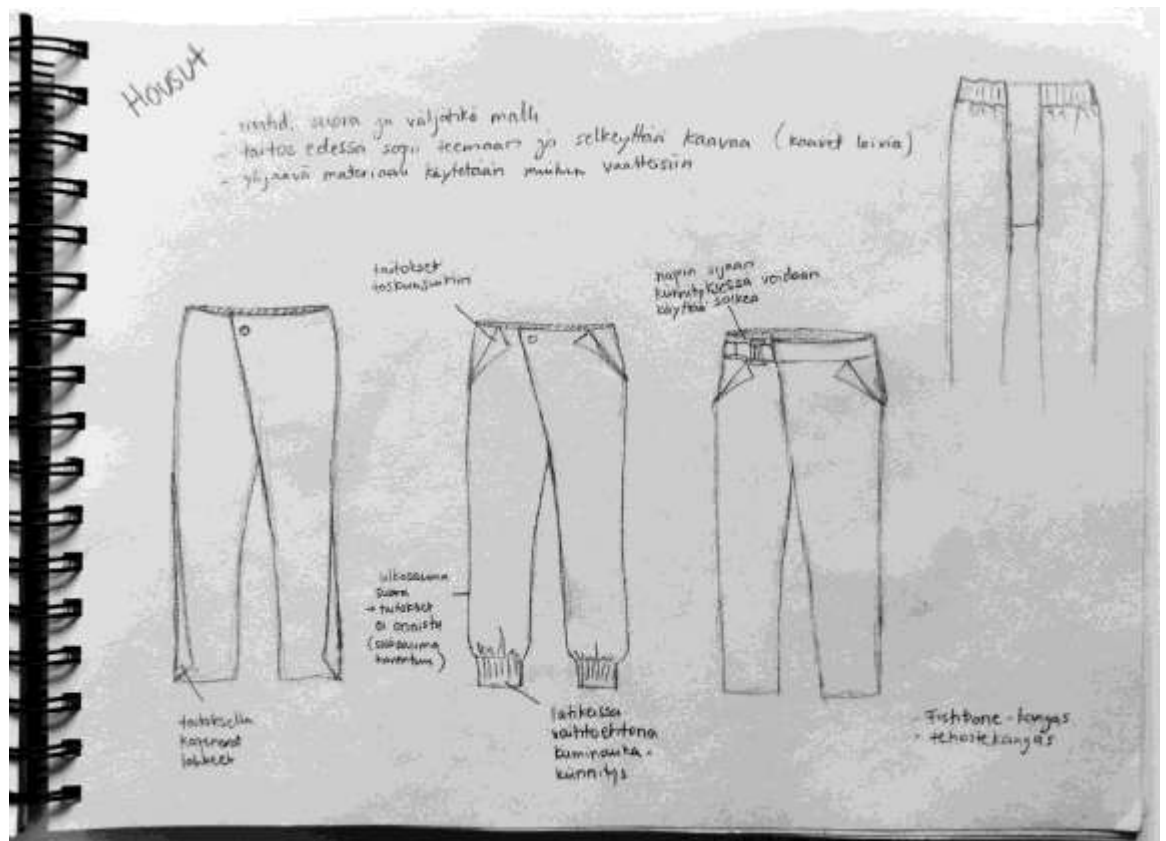 Housut
- mahd. suora ja väljähkö malli
- taitos edessä sopii teemaan ja selkeyttää kaavaa (kaavat leiviä)
- ylijäävä materiaali käytetään muihin vaatteisiin
taitokset
taskunsuihin
napin sijaan
kiinnityksessä voidaan
käyttää solkea
ulkosauma
suora
→ taitokset
ei onnistu
(sisäsauma
kaventuu)
taitoksella
kavennetut
lahkeet
lahkeissa
vaihtoehtona
kuminauha-
kiinnitys
- Fishbone-kangas
- tehostekangas